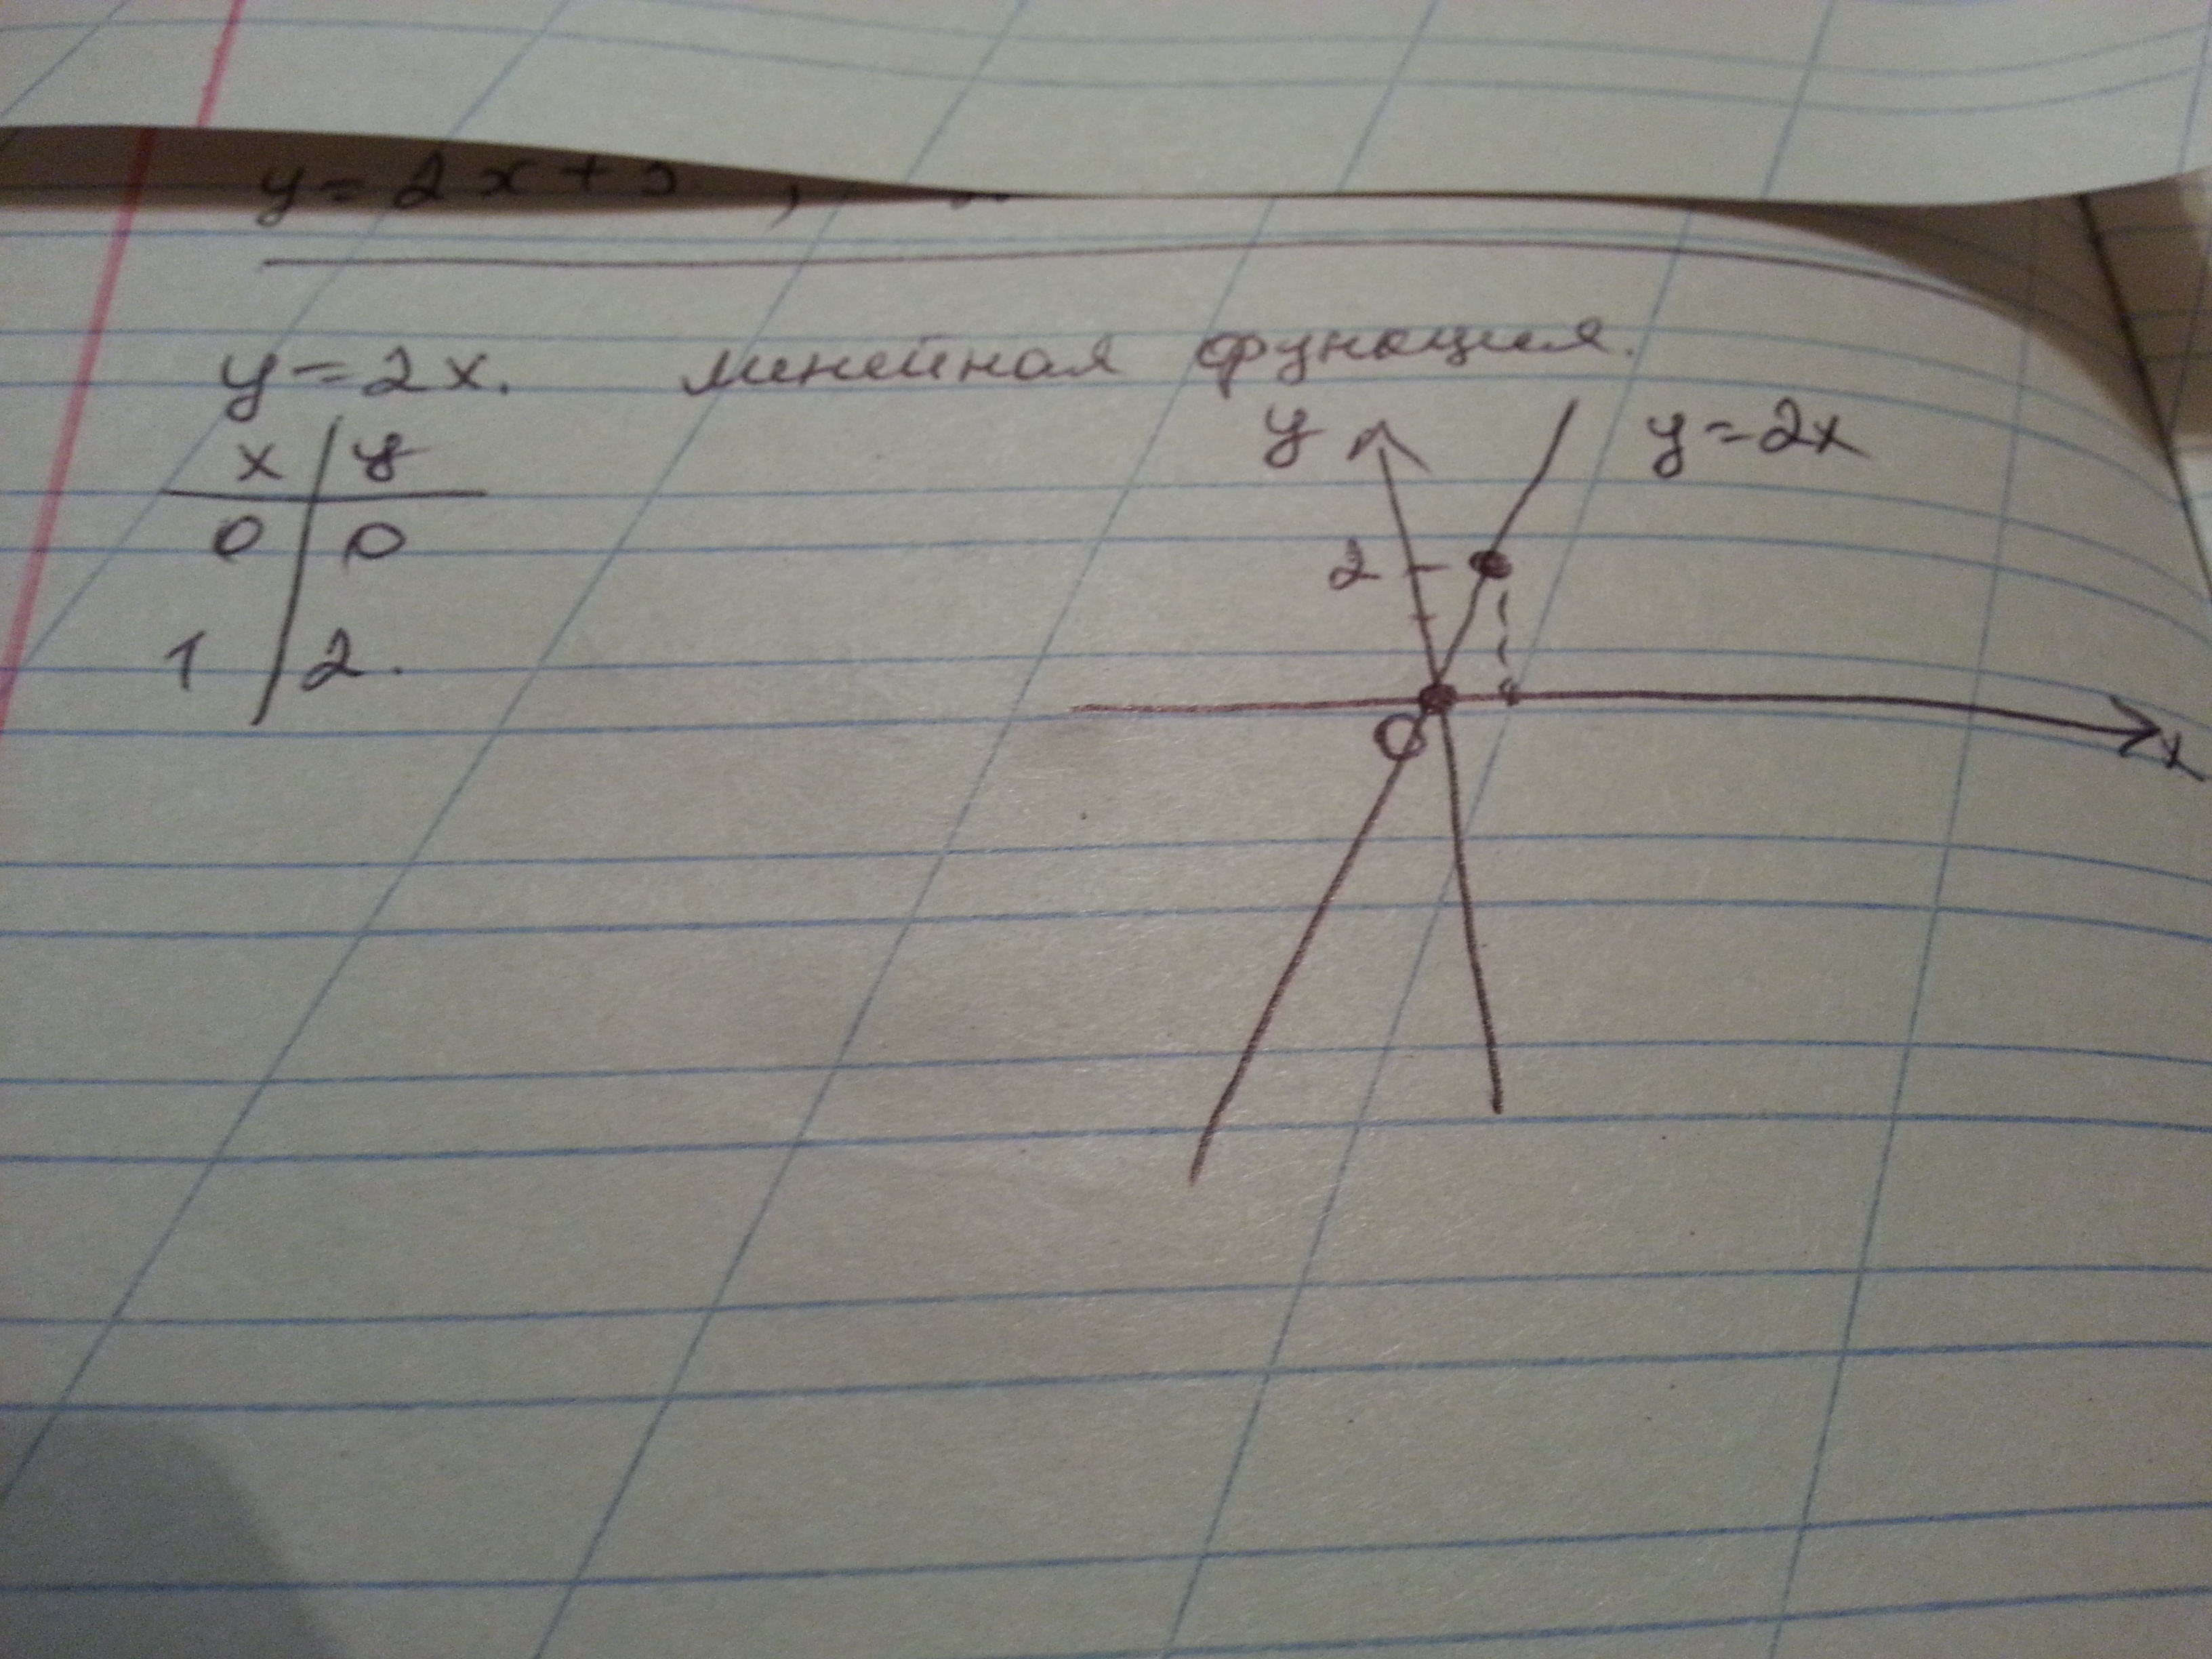 y = 2x +
y = 2x. линейная функция.
x y
0 0
1 2.
y y = 2x
2
0
x